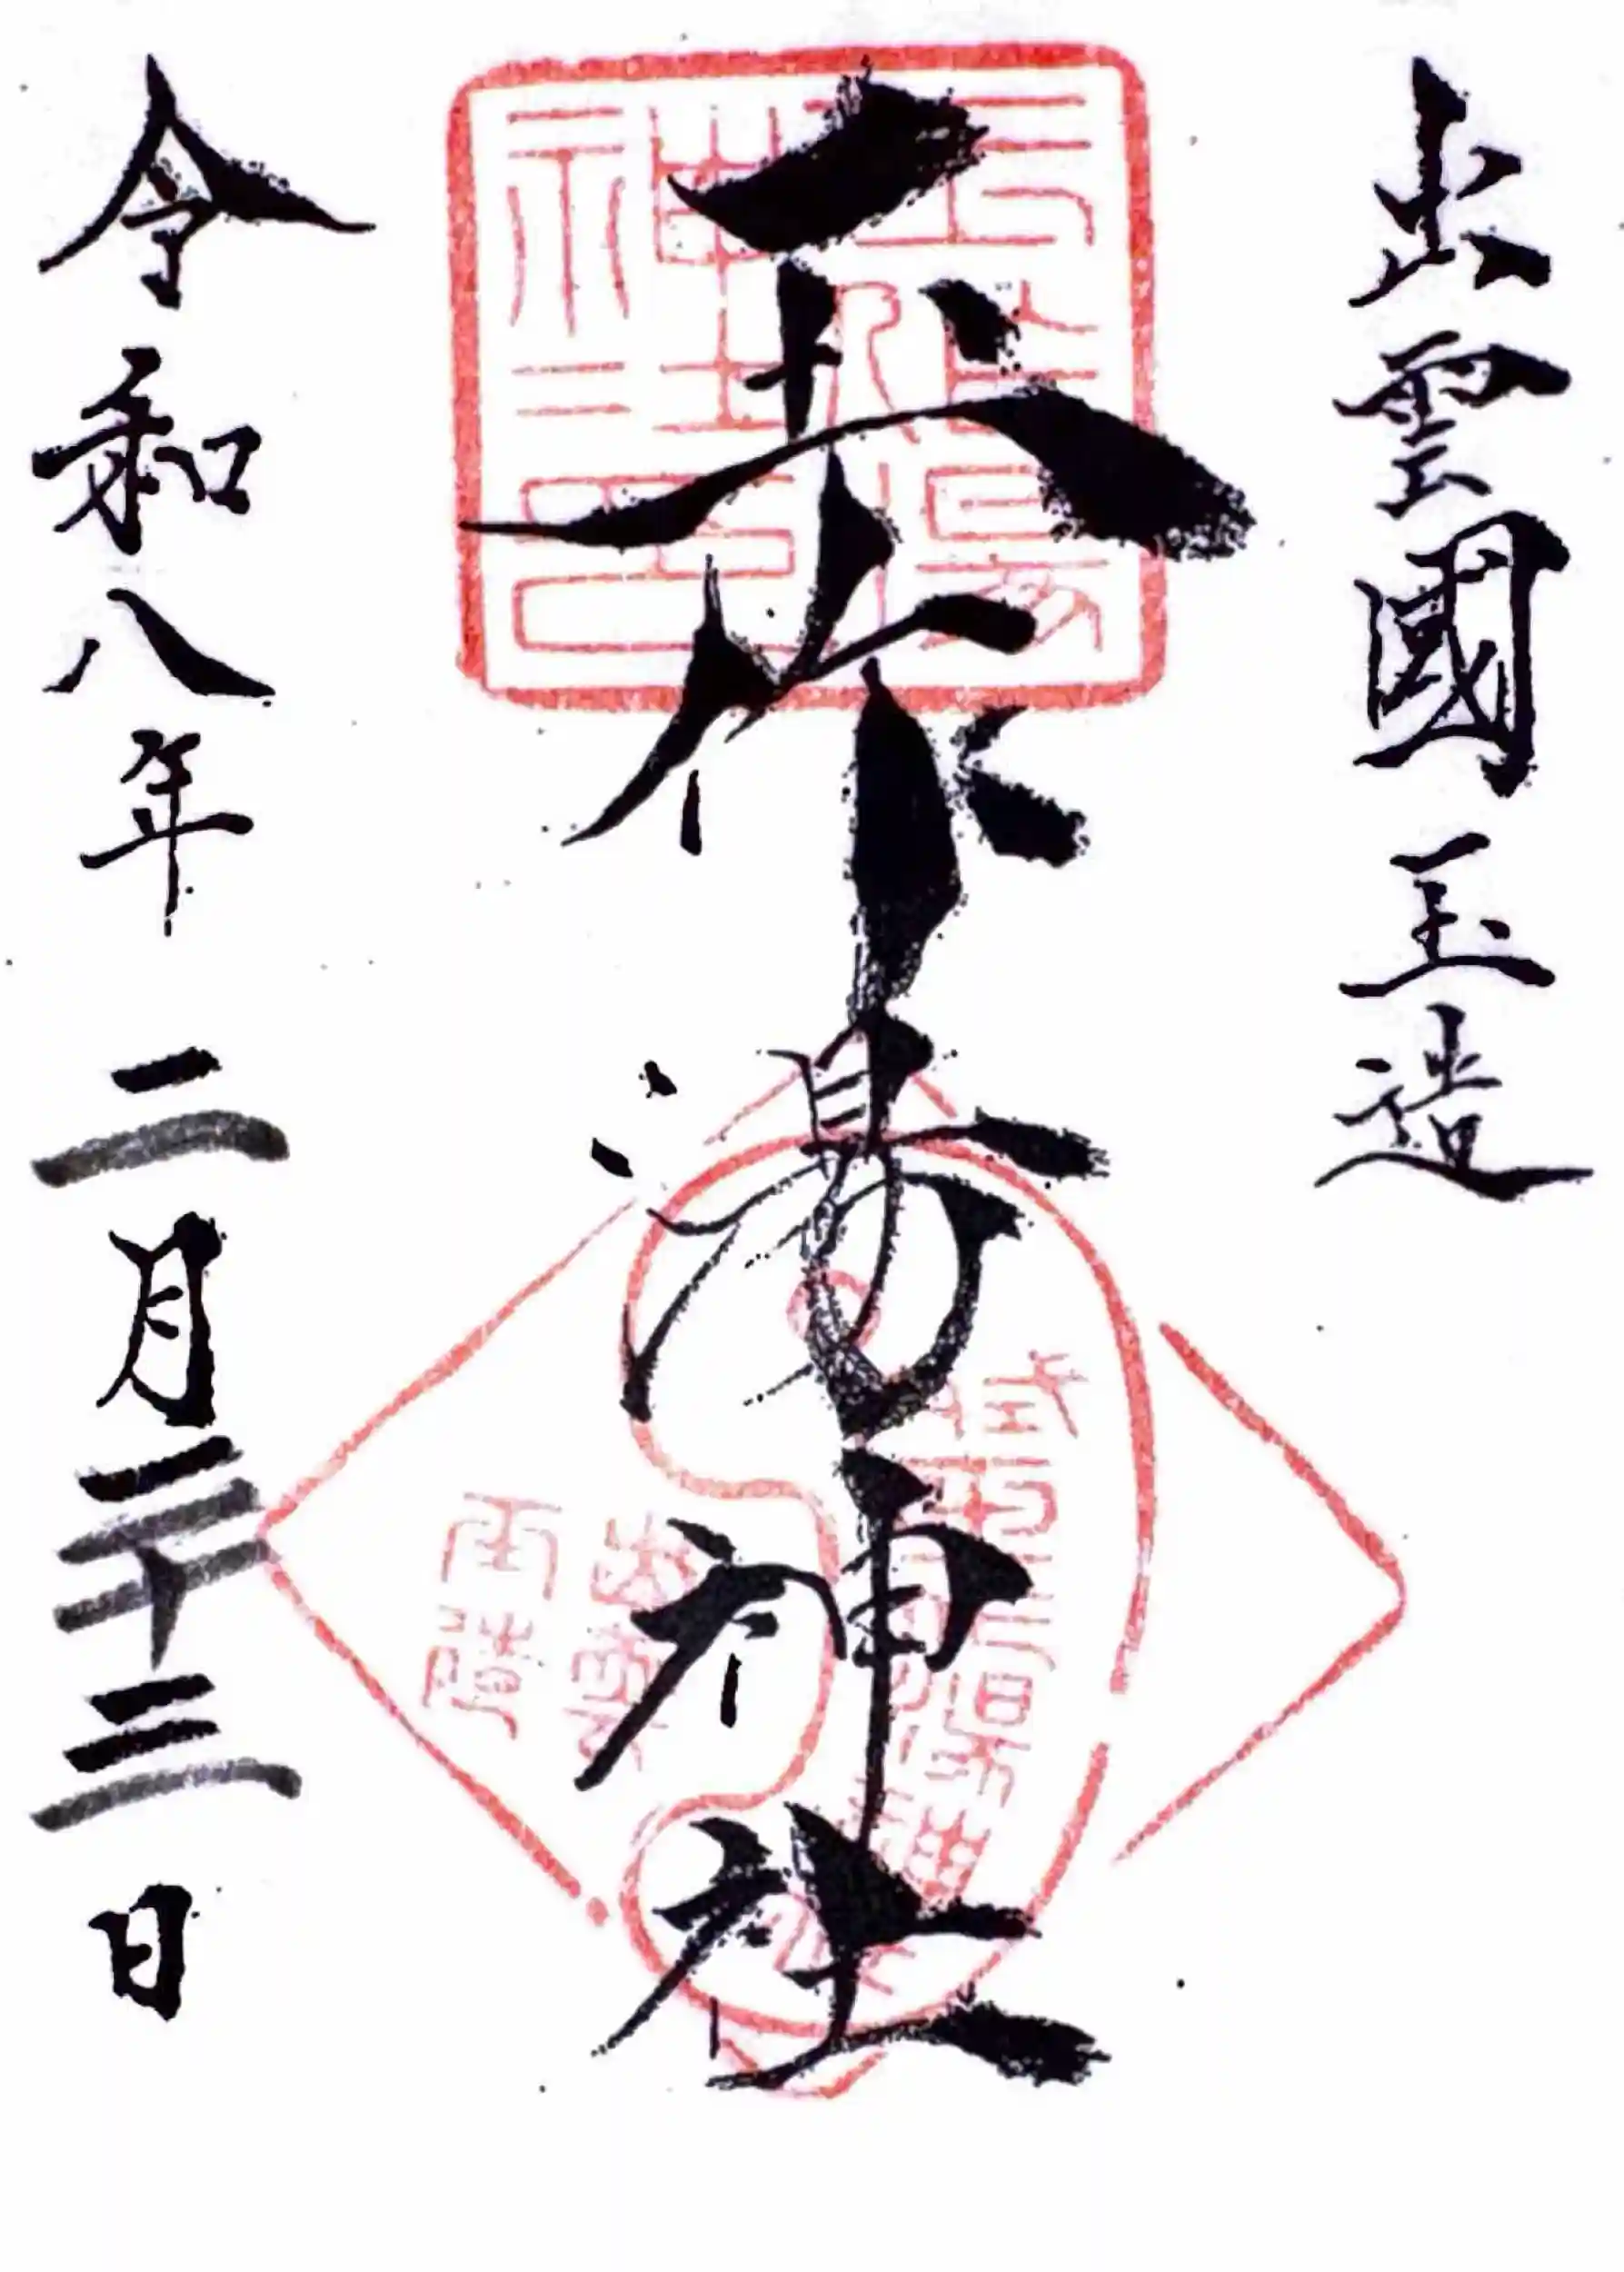 出雲國玉造
玉作湯神社
令和八年 二月二十三日
玉作湯
神社印
出雲
玉造